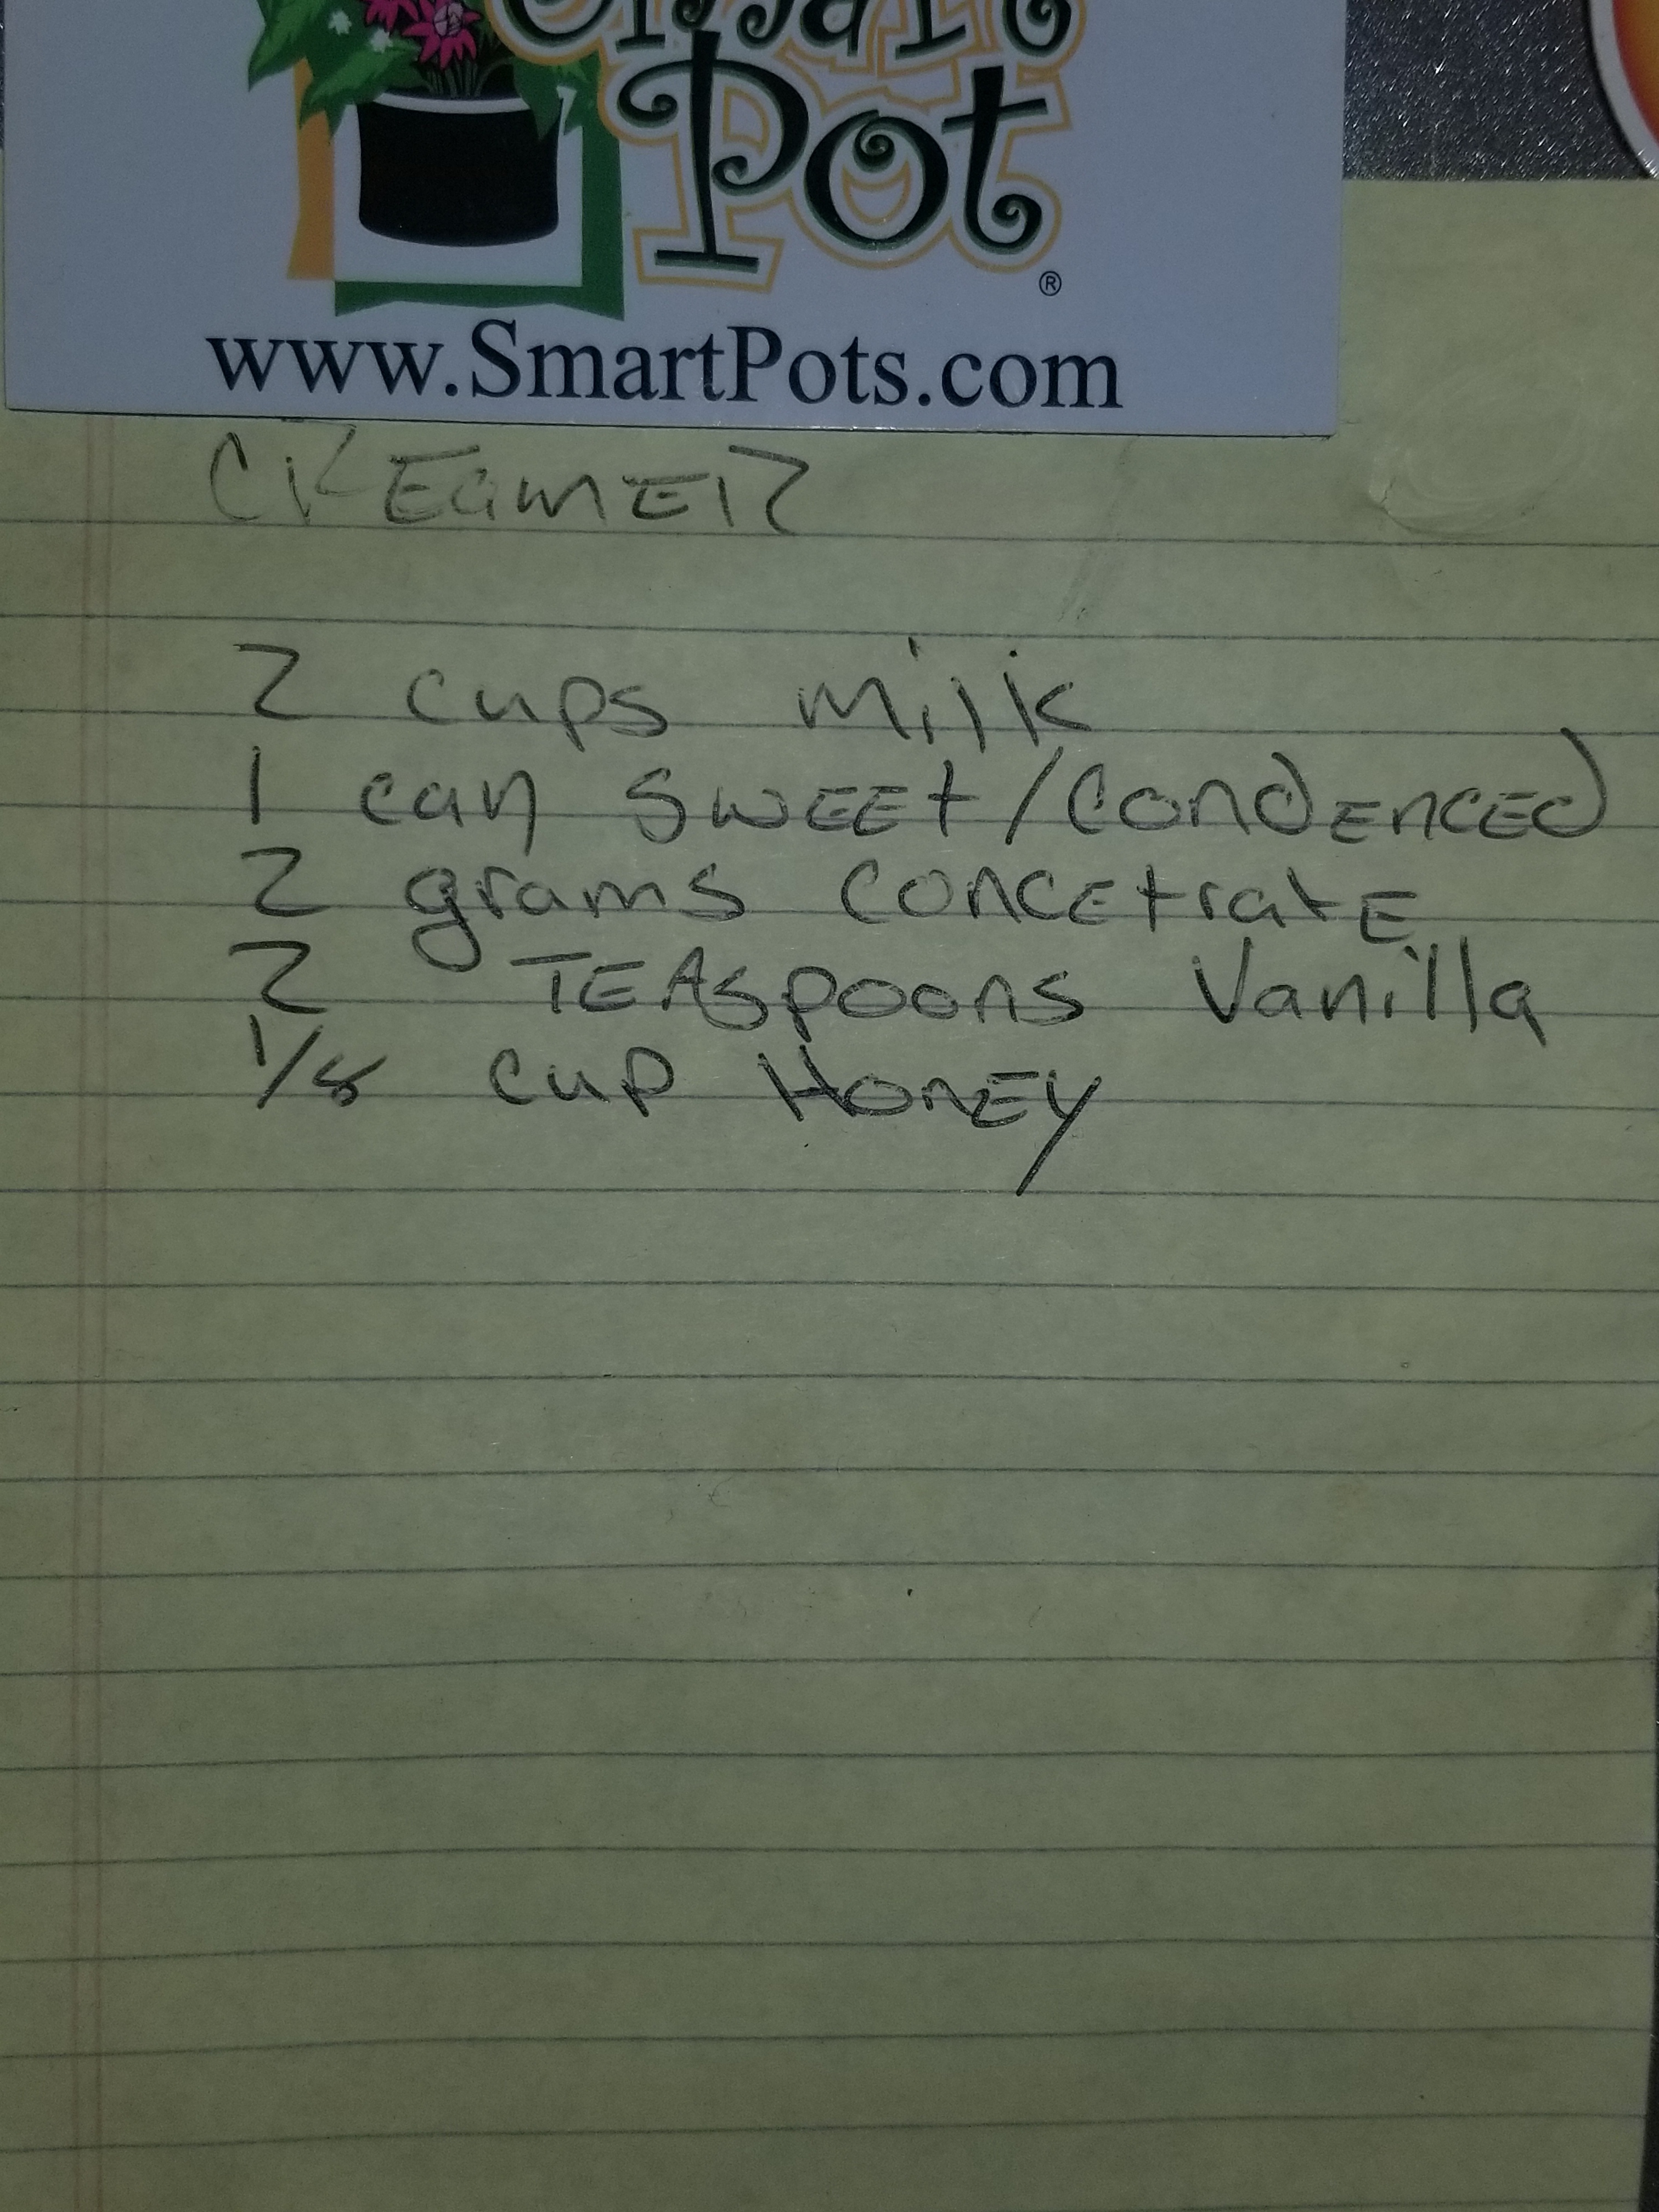 Smart
Pot
®
www.SmartPots.com
CREAMER
2 cups milk
1 can SWEEt/CondEnCED
2 grams ConcEtratE
2 TEAspoons Vanilla
1/8 cup HonEy